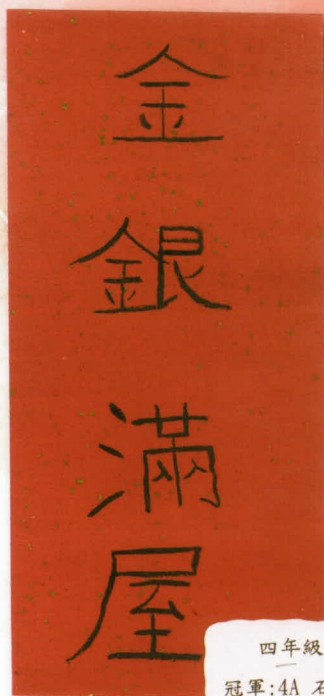 金銀滿屋
四年級
冠軍:4A